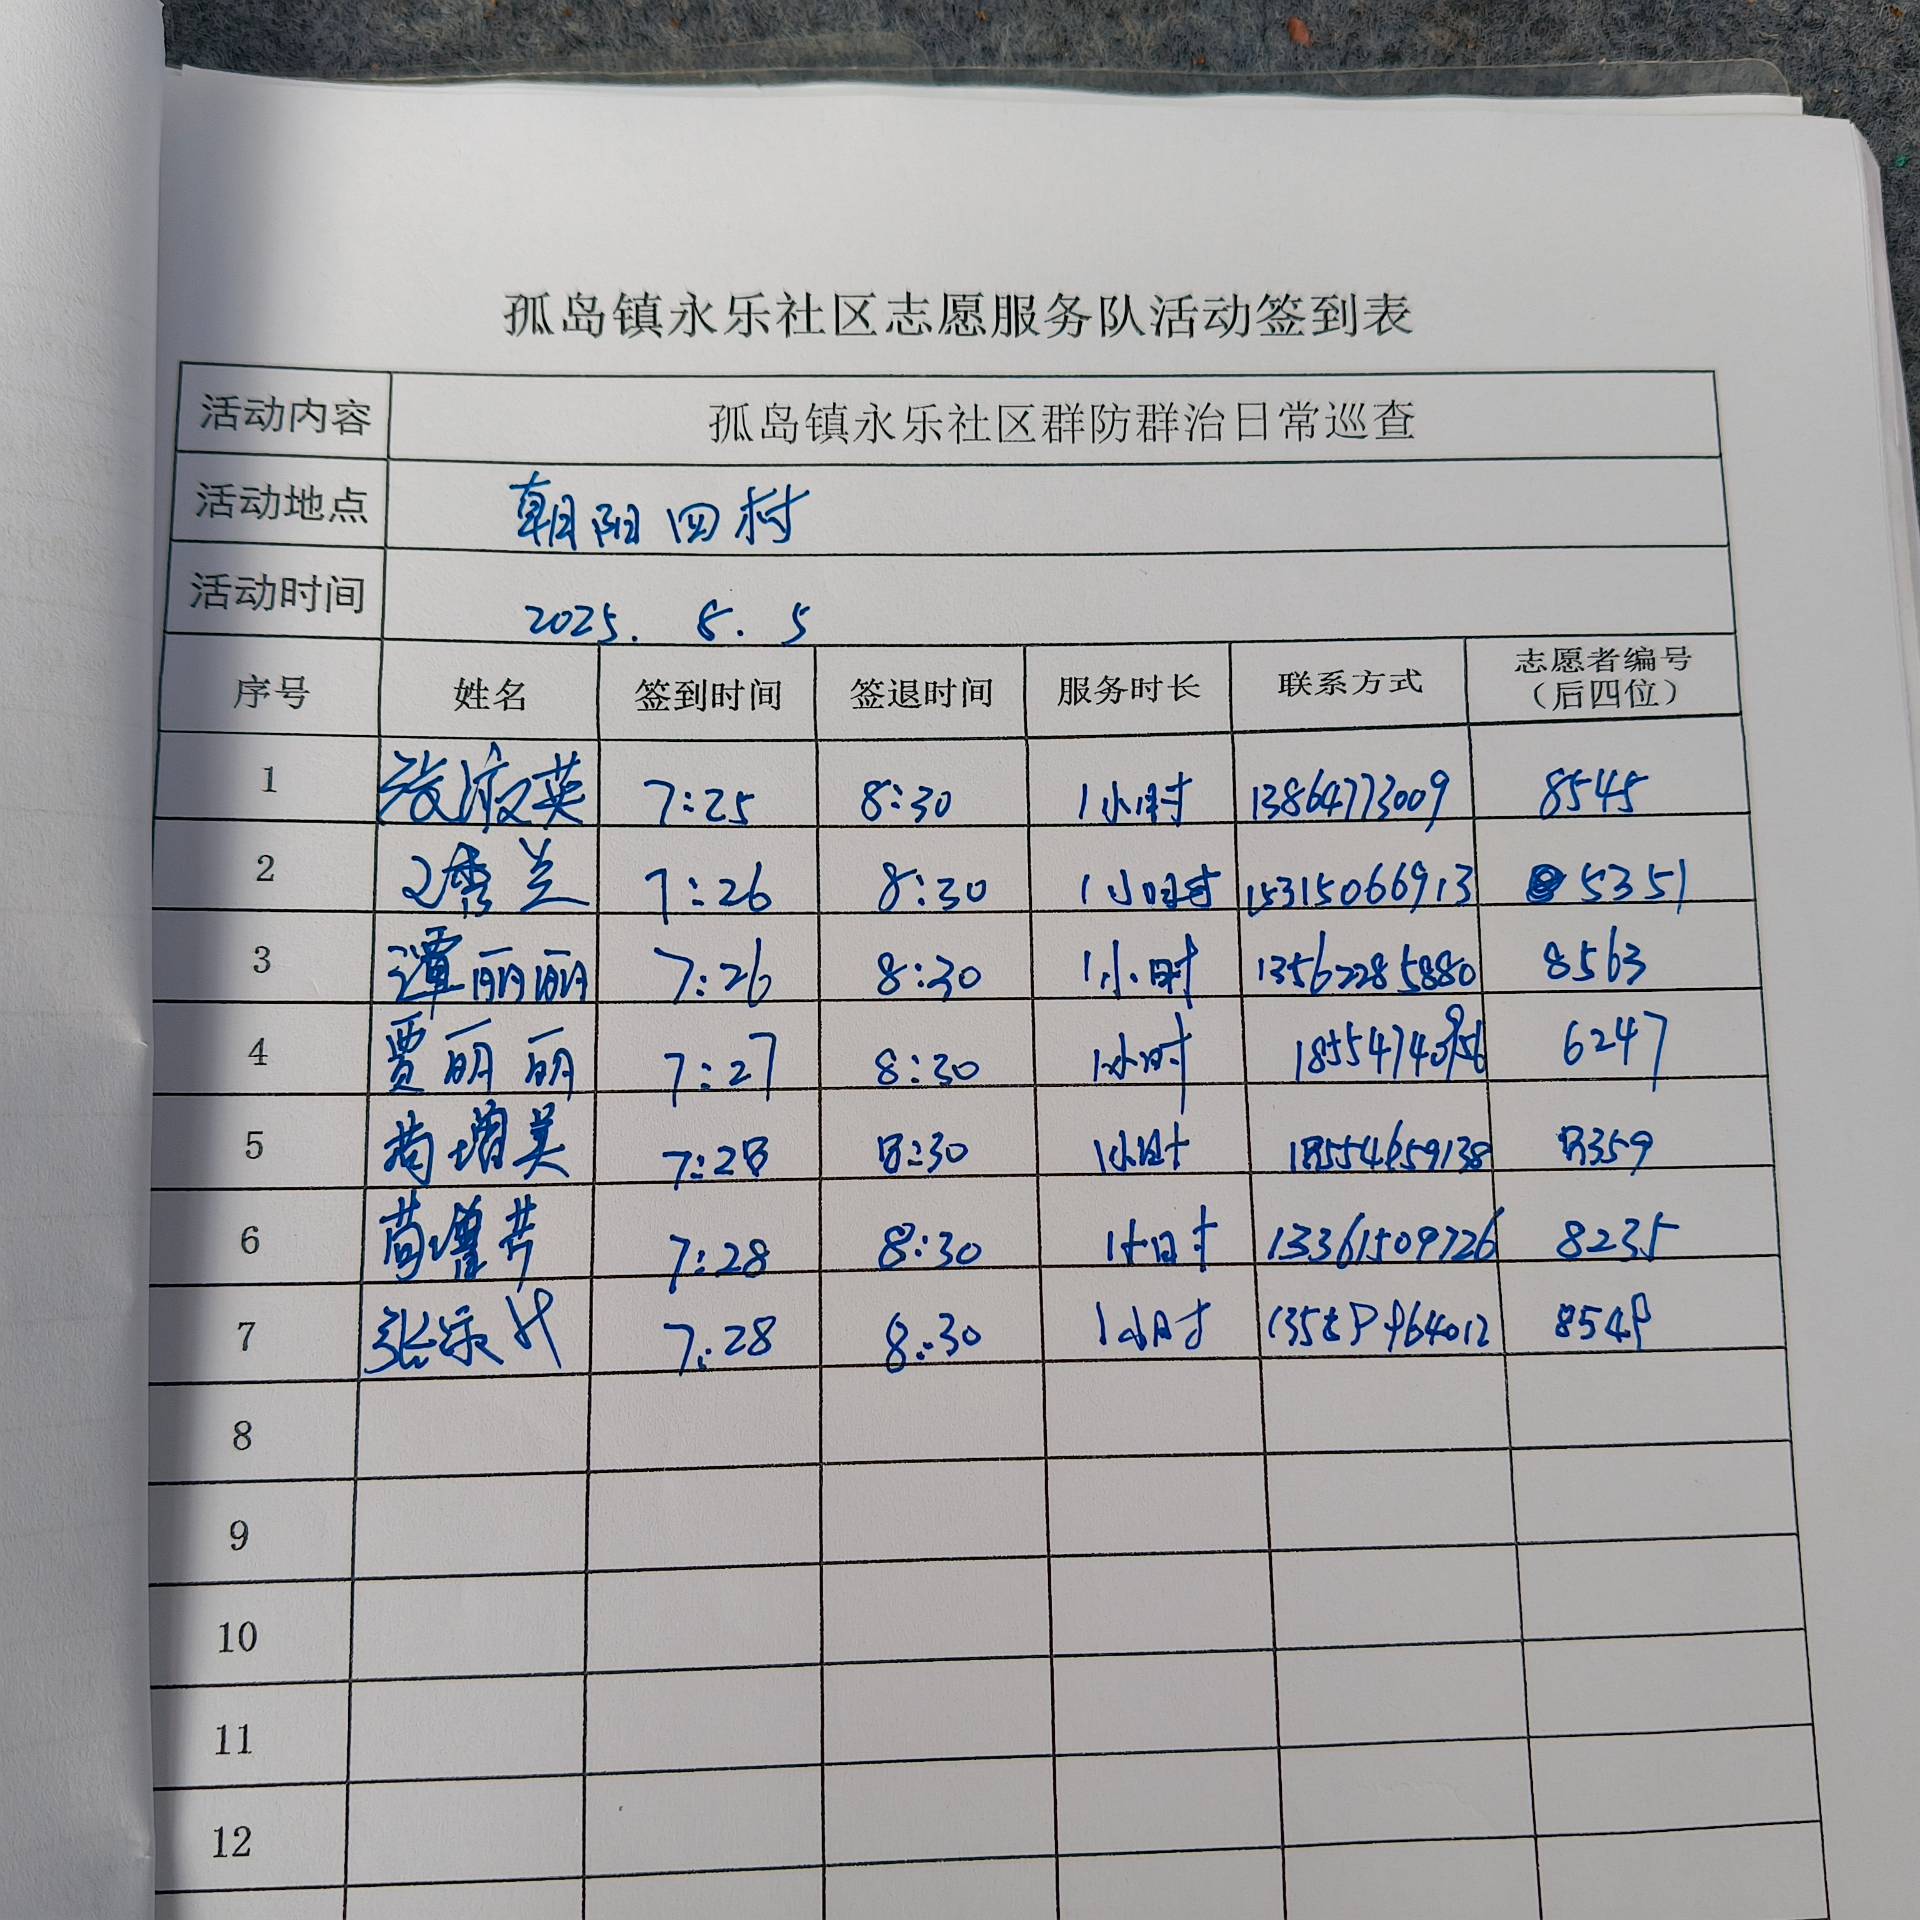 孤岛镇永乐社区志愿服务队活动签到表
活动内容 孤岛镇永乐社区群防群治日常巡查
活动地点 朝阳四村
活动时间 2025. 8. 5
序号 姓名 签到时间 签退时间 服务时长 联系方式 志愿者编号（后四位）
1 7:25 8:30 1小时 13864773009 8545
2 7:26 8:30 1小时 15315066913 5351
3 谭丽丽 7:26 8:30 1小时 13562285880 8563
4 贾丽丽 7:27 8:30 1小时 6247
5 苟增美 7:28 8:30 1小时 18554659138 8359
6 7:28 8:30 1小时 13361509726 8235
7 7:28 8:30 1小时
8
9
10
11
12